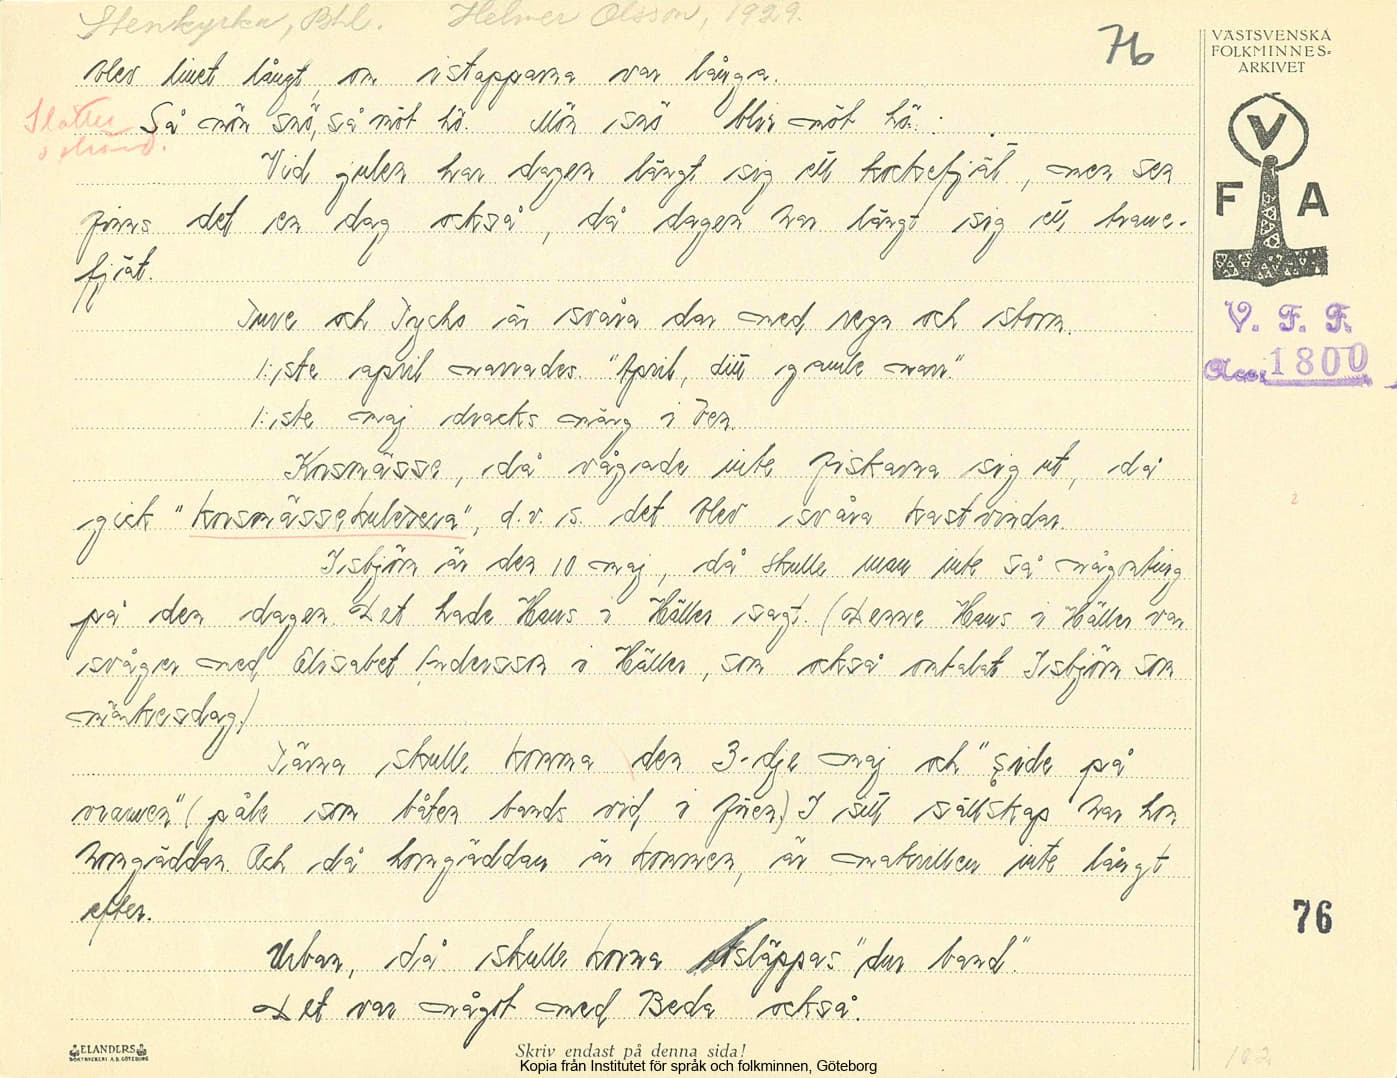 Stenkyrka, Bhl. Helmer Olsson, 1929.
76
VÄSTSVENSKA
FOLKMINNES-
ARKIVET
blev linet långt, om istapparna var långa.
Slåtter
o skörd.
Så mön snö, så möt hö. Mön snö blir möt hö.
Vid julen har dagen längt sig ett kockefjät, men sen
finns det en dag också, då dagen har längt sig ett
fjät.
V
F A
Ture och Tycho är svåra dar med regn och storm.
V. F. F.
Acc. 1800
1:ste april narrades. "April, ditt gamle narr."
1:ste maj dracks märg i ben.
Korsmässa, då vågade inte fiskarna sig ut, då
gick "korsmässekulerera", d.v.s. det blev svåra kastvindar.
Isbjörn är den 10 maj, då skulle man inte så någonting
på den dagen. Det hade Hans i Hällen sagt. (Denne Hans i Hällen var
svåger med Elisabet Andersson i Hällen, som också omtalat Isbjörn som
märkesdag.)
Tärna skulle komma den 3-dje maj och "side på
" (påle som båten bands vid, i sjöen.) I sitt sällskap har hon
horngäddan. Och då horngäddan är kommen, är makrillen inte långt
efter.
76
Urban, då skulle korna utsläppas "dur band".
Det var något med Beda också.
ELANDERS
BOKTRYCKERI A.B. GÖTEBORG
Skriv endast på denna sida!
Kopia från Institutet för språk och folkminnen, Göteborg